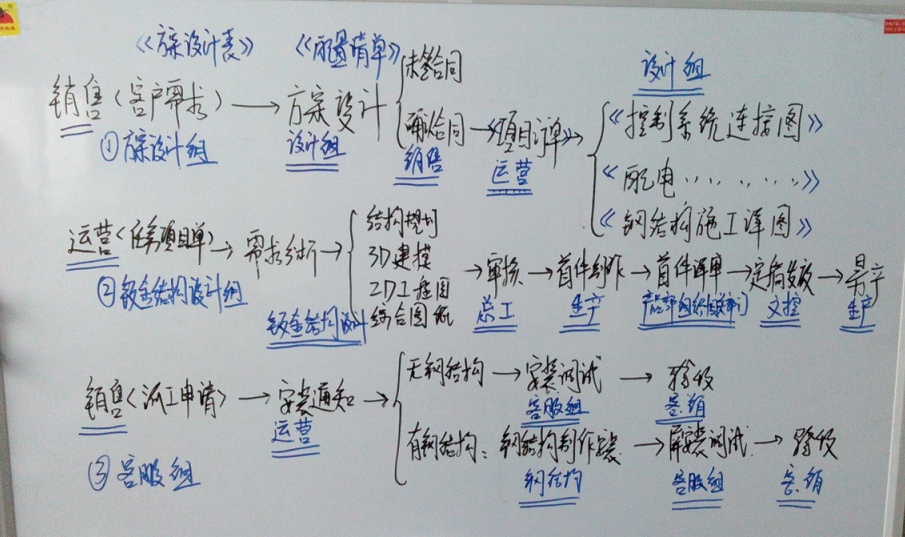 《方案设计表》 《配置清单》
未签合同 设计组
销售（客户需求）→方案设计 《控制系统连接图》
确认合同→《项目订单》
①方案设计组 设计组 销售 运营 《配电………》
《钢结构施工详图》
结构规划
运营《任务项目单》→需求分析→3D建模
→审核→首件制作→首件评审→定稿发放→量产
②钣金结构设计组 2D工程图
钣金结构设计 综合图纸 总工 生产 文控 生产
无钢结构→安装调试→验收
销售《派工申请》→安装通知→ 客服组 客.销
运营 有钢结构：钢结构制作安装→屏安装调试→验收
③客服组 钢结构 客服组 客.销